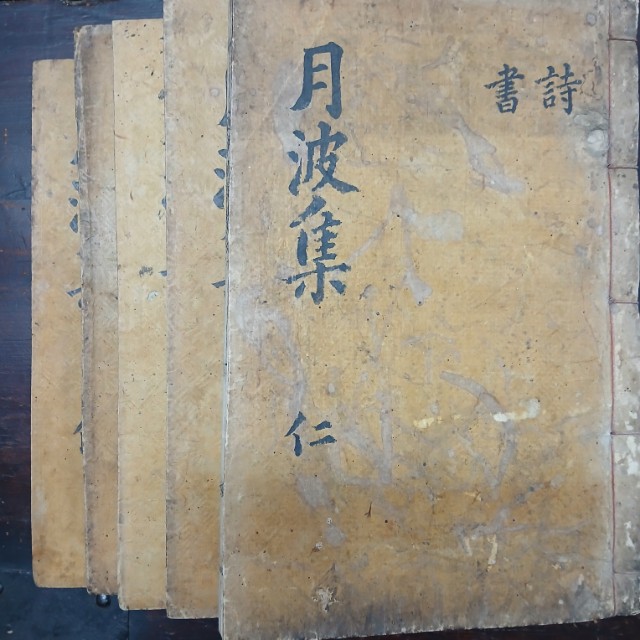 詩
書
月波集
仁